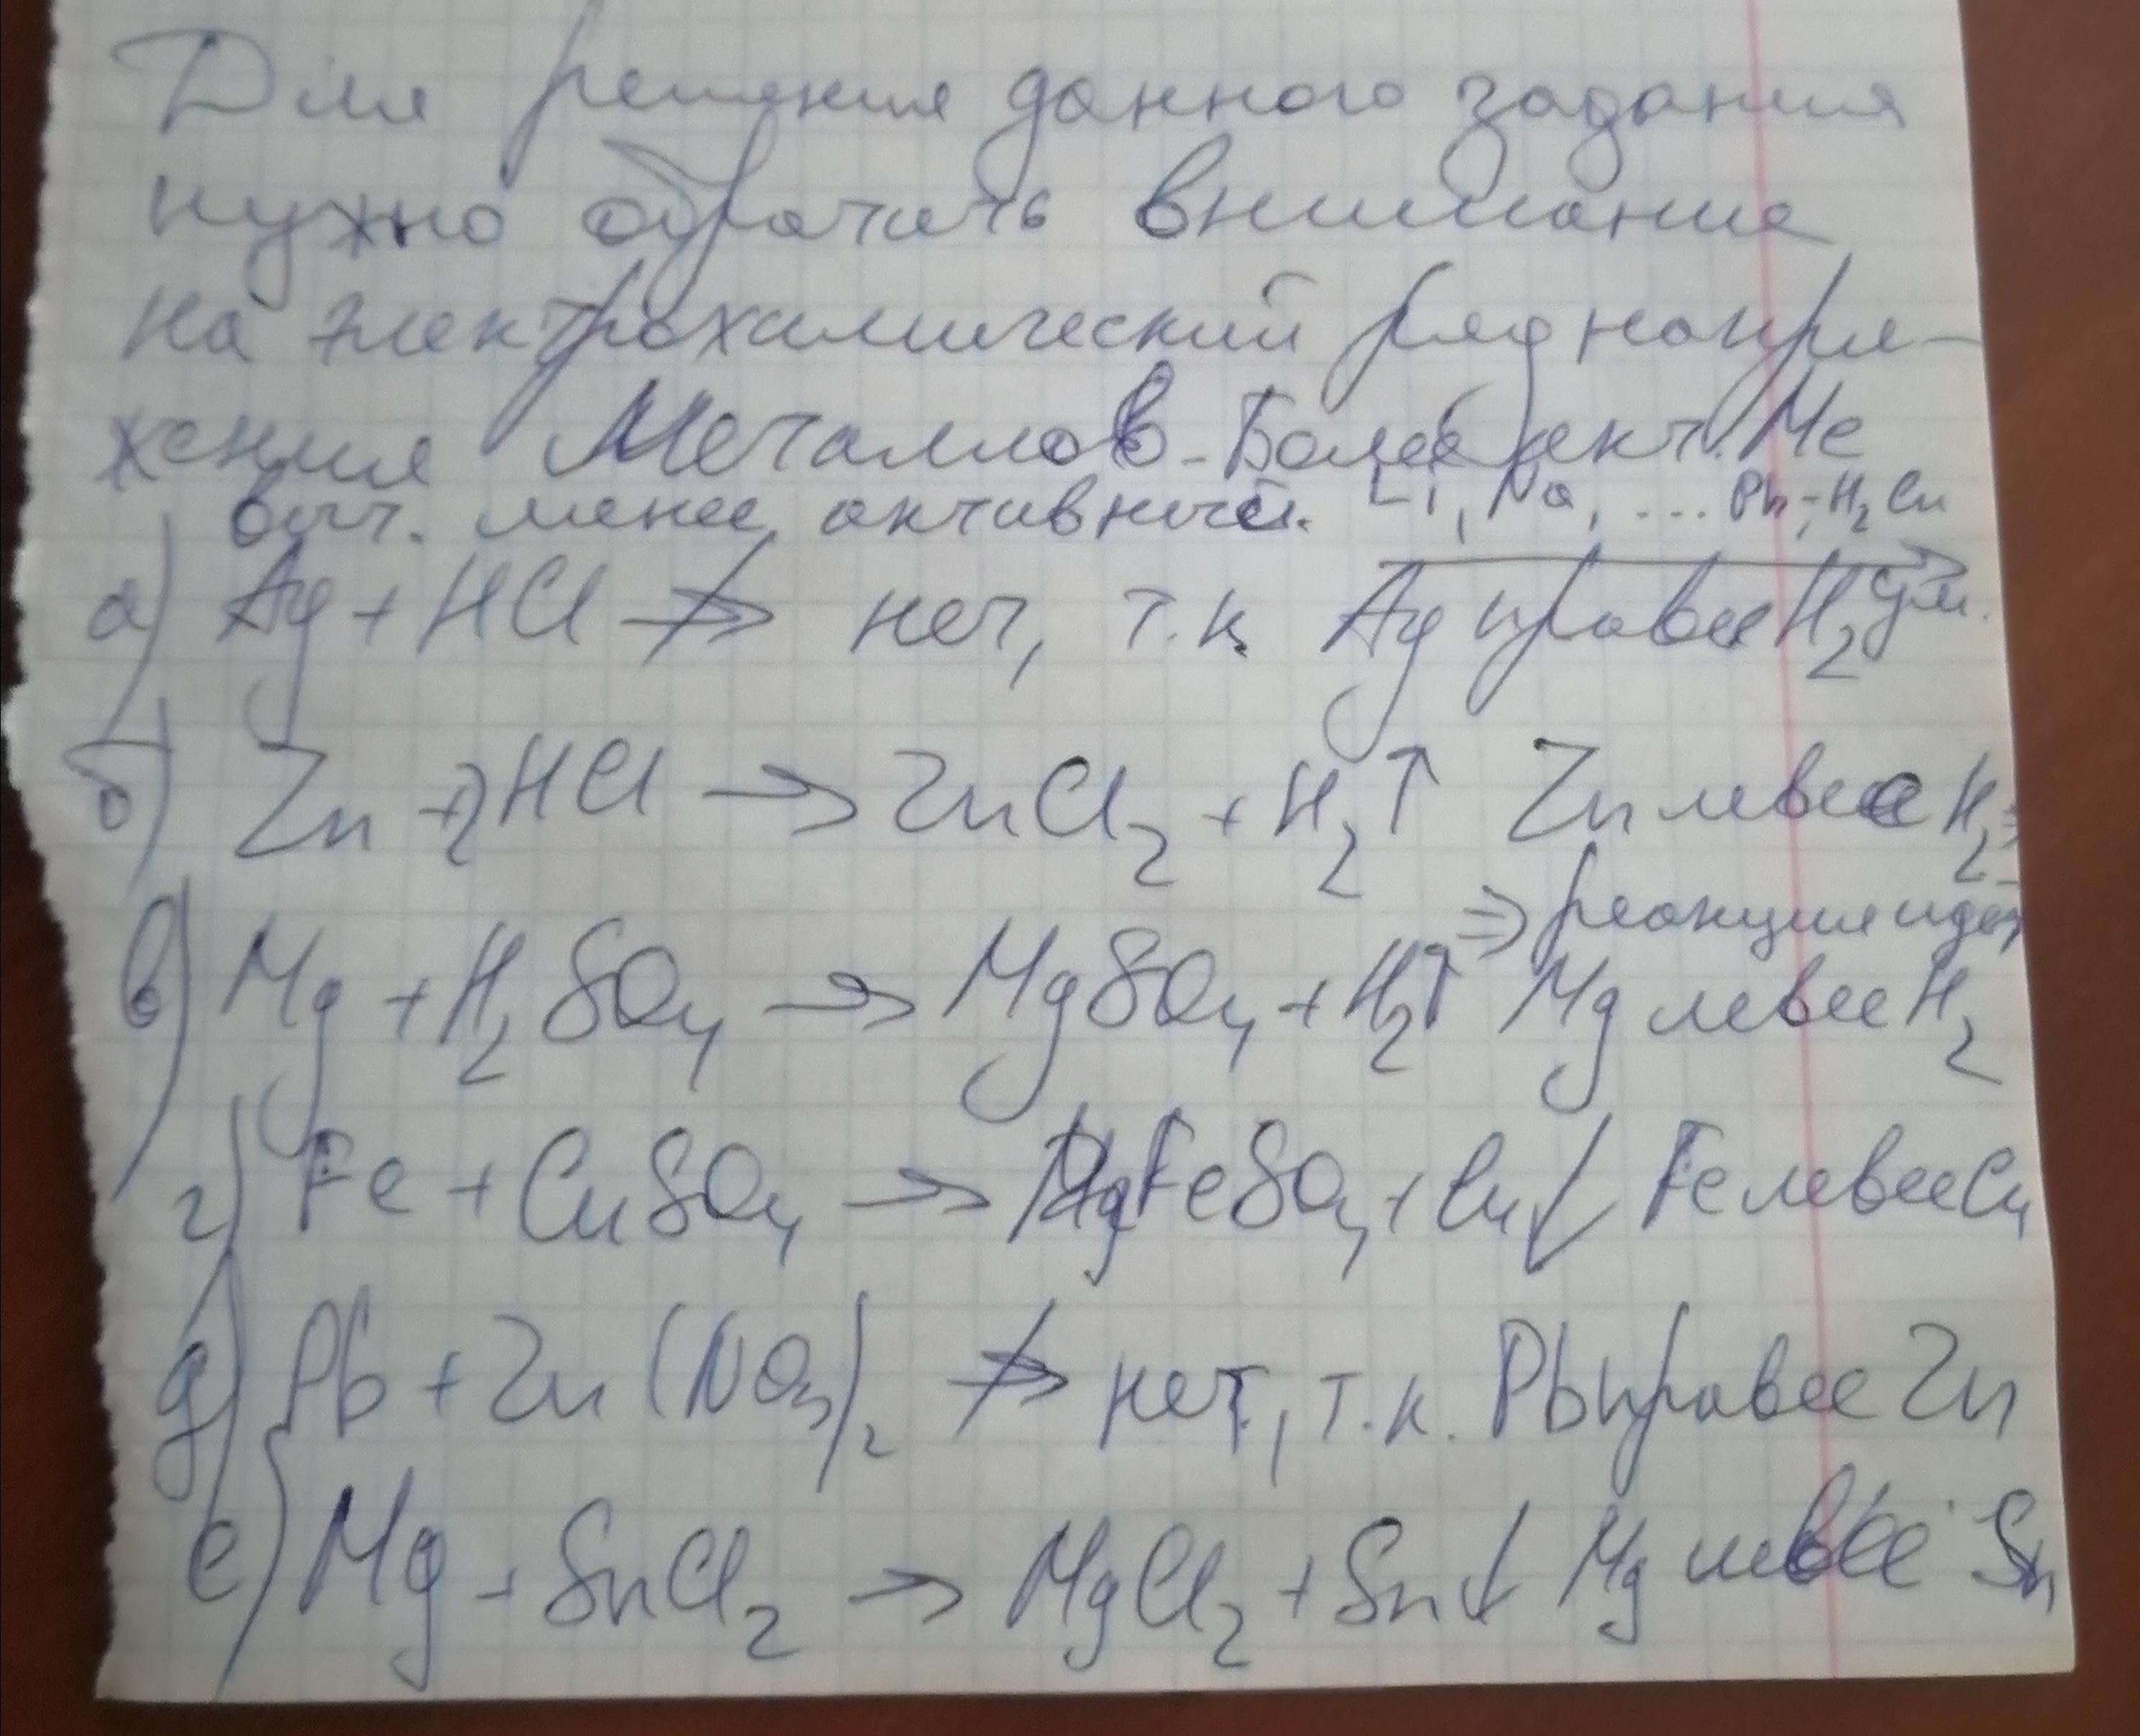 Для решения данного задания
нужно обратить внимание
на электрохимический ряд напря-
жения Металлов. Более акт. Me
выт. менее активный. Li, Na, ... Pb, H₂ Cu
а) Ag + HCl ↛ нет, т.к Ag правее H₂ ум.
б) Zn + 2HCl → ZnCl₂ + H₂↑ Zn левее H₂ ⇒
⇒ реакция идет
в) Mg + H₂SO₄ → MgSO₄ + H₂↑ Mg левее H₂
г) Fe + CuSO₄ → FeSO₄ + Cu↓ Fe левее Cu
д) Pb + Zn(NO₃)₂ ↛ нет, т.к. Pb правее Zn
е) Mg + SnCl₂ → MgCl₂ + Sn↓ Mg левее Sn